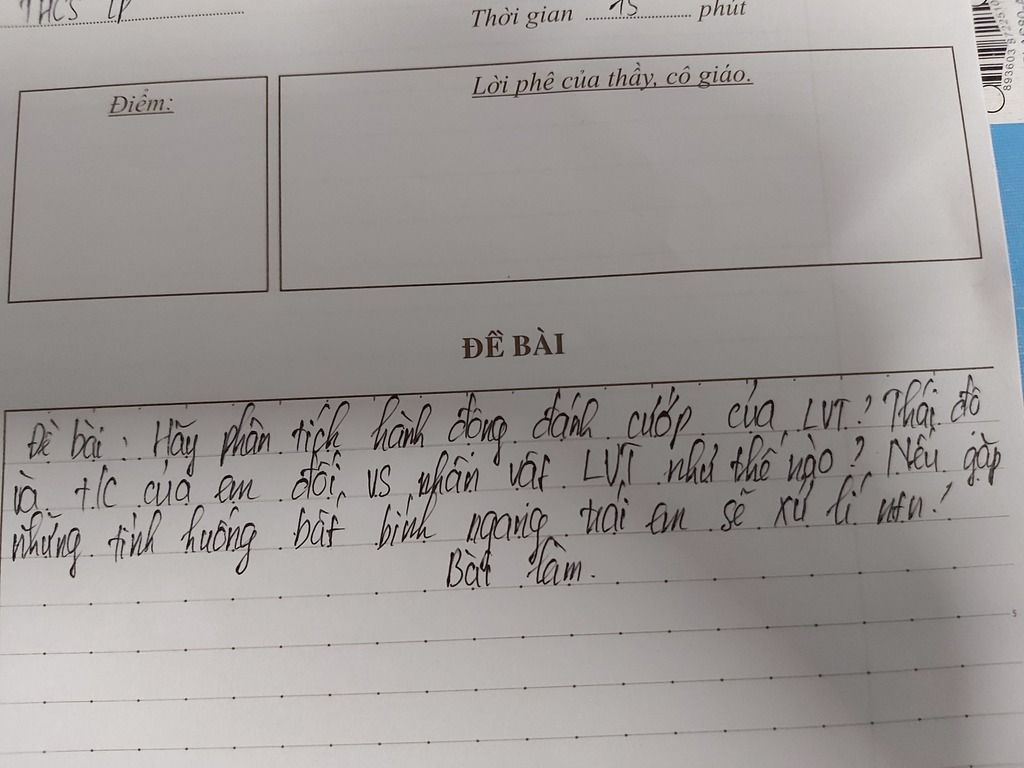 THCS LP
Thời gian ........15........ phút
Điểm:
Lời phê của thầy, cô giáo.
ĐỀ BÀI
Đề bài: Hãy phân tích hành động đánh cướp của LVT? Thái độ
và t/c của em đối vs nhân vật LVT như thế nào? Nếu gặp
những tình huống bất bình ngang trái em sẽ xử lí ntn?
Bài làm.
5